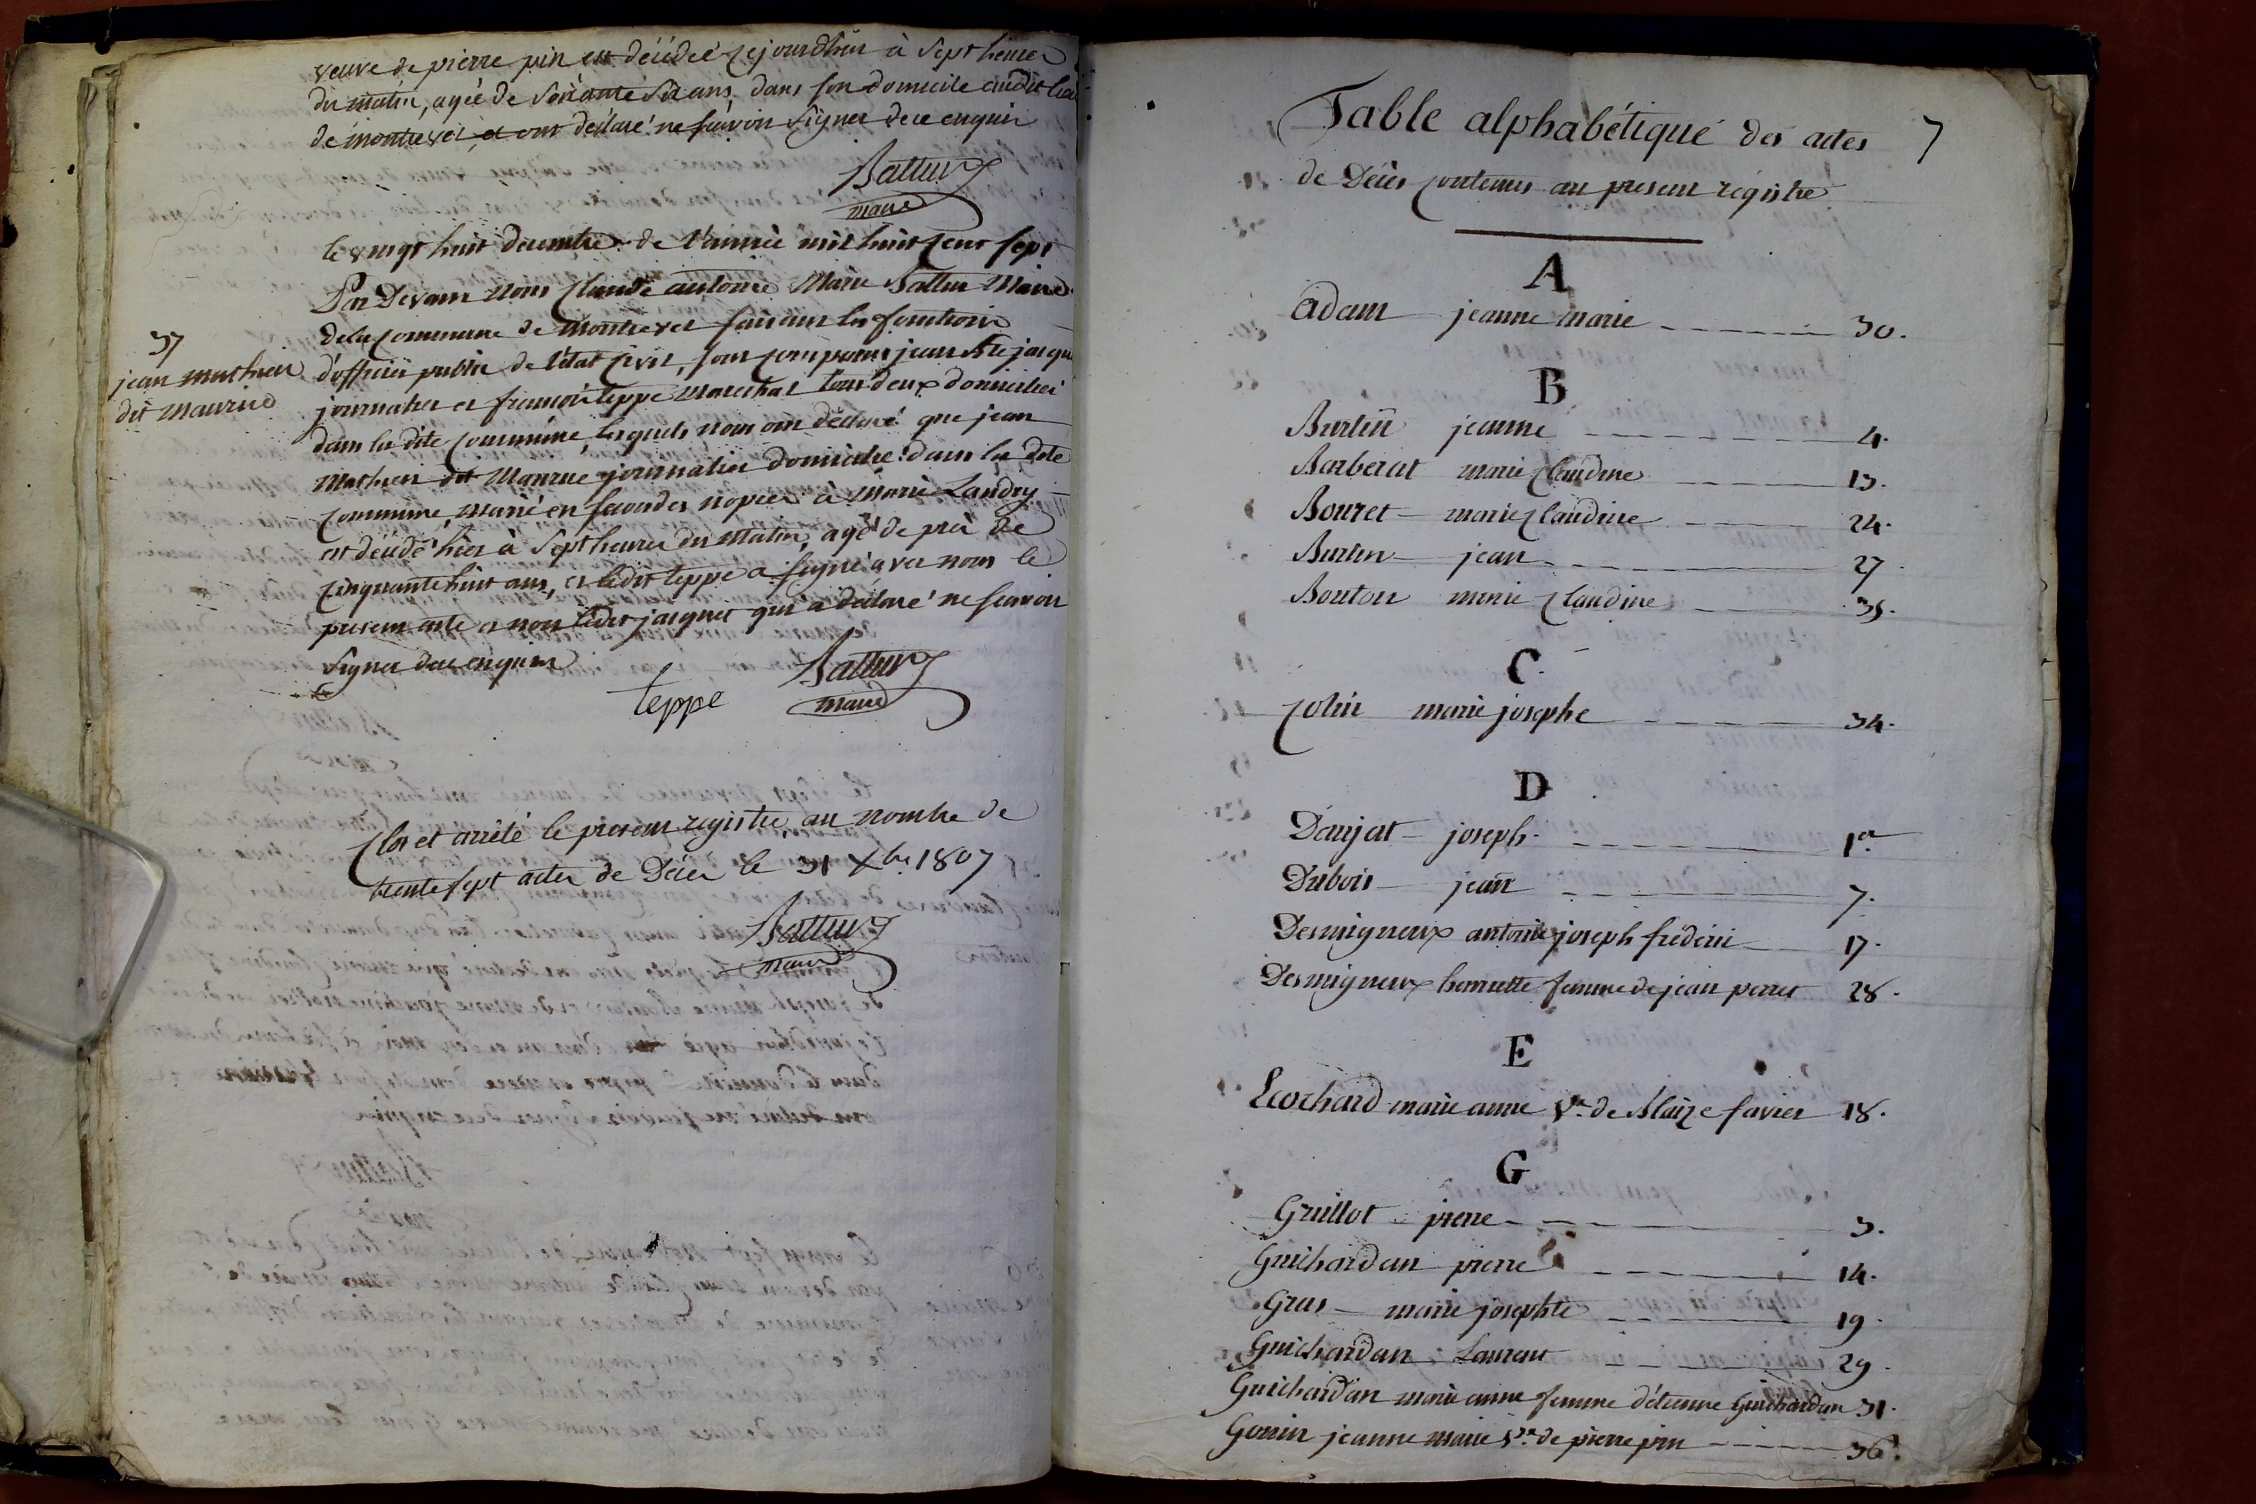 veuve de pierre pin est décédée cejourdhui à sept heures
du matin, agée de soixante six ans, dans son domicile audit lieu
de montrevel, et ont déclaré ne scavoir signer de ce enquis
maire
le vingt huit decembre de l'année mil huit cent sept
Par Devant nous Claude antoine Marie Maire
dela Commune de Montrevel faisant les fonctions
d'officier public de l'état civil, sont comparus jean
37
jean mathieu
dit maurice
journalier et francois teppe Marechal tous deux domiciliés
dans la dite Commune, lesquels nous ont déclaré que jean
Mathieu dit Maurice journalier domicilié dans la dite
Commune, marié en secondes nopces à Marie Landry
est décédé hier à sept heures du matin, agé de près de
cinquante huit ans, et ledit teppe a signé avec nous le
present acte et non ledit jaiquet qui a déclaré ne scavoir
signer de ce enquis
teppe
maire
Clos et arrêté le present registre au nombre de
trente sept actes de Décès le 31 Xbre 1807
maire
Table alphabétique des actes 7
de Décès contenus au present régistre
A
adam jeanne marie 30.
B
Burtin jeanne 4.
Barberat marie Claudine 13.
Bouret marie Claudine 24.
Burtin jean 27
Bouton marie Claudine 35.
C
Colin marie josephe 34.
D
Daujat joseph 1er
Dubois jean 7.
Desmigneux antoine joseph fréderic 17.
Desmigneux henriette femme de jean perret 28.
E
Ecochard marie anne Ve de Blaize favier 18.
G
Guillot pierre 3.
Guichardan pierre 14.
Gras marie josephte 19.
Guichardan Laurent 29.
Guichardan marie anne femme d'étienne Guichardan 31.
Gonin jeanne marie Ve de pierre pin 36.